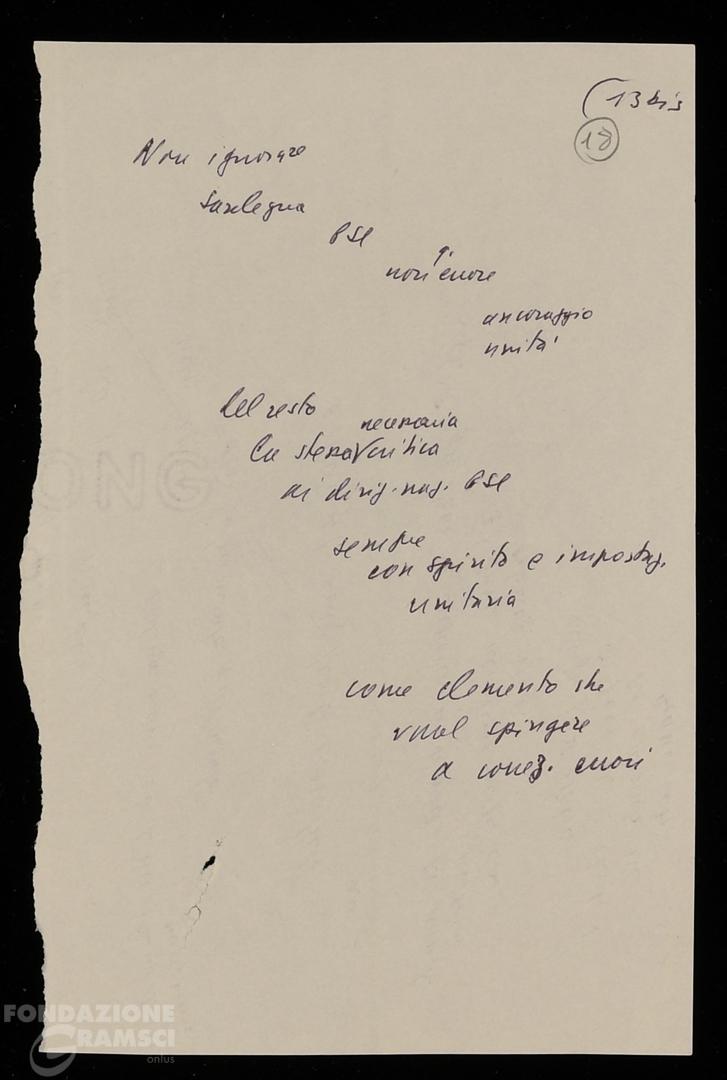 (13 bis
18
Non ignorare
Sardegna
PSI
ancoraggio
unità
Del resto
necessaria
la stessa critica
ai dirig. naz. PSI
sempre
con spirito e impostaz.
unitaria
come elemento che
vuol spingere
a correz. errori
ONG
FONDAZIONE
GRAMSCI
onlus